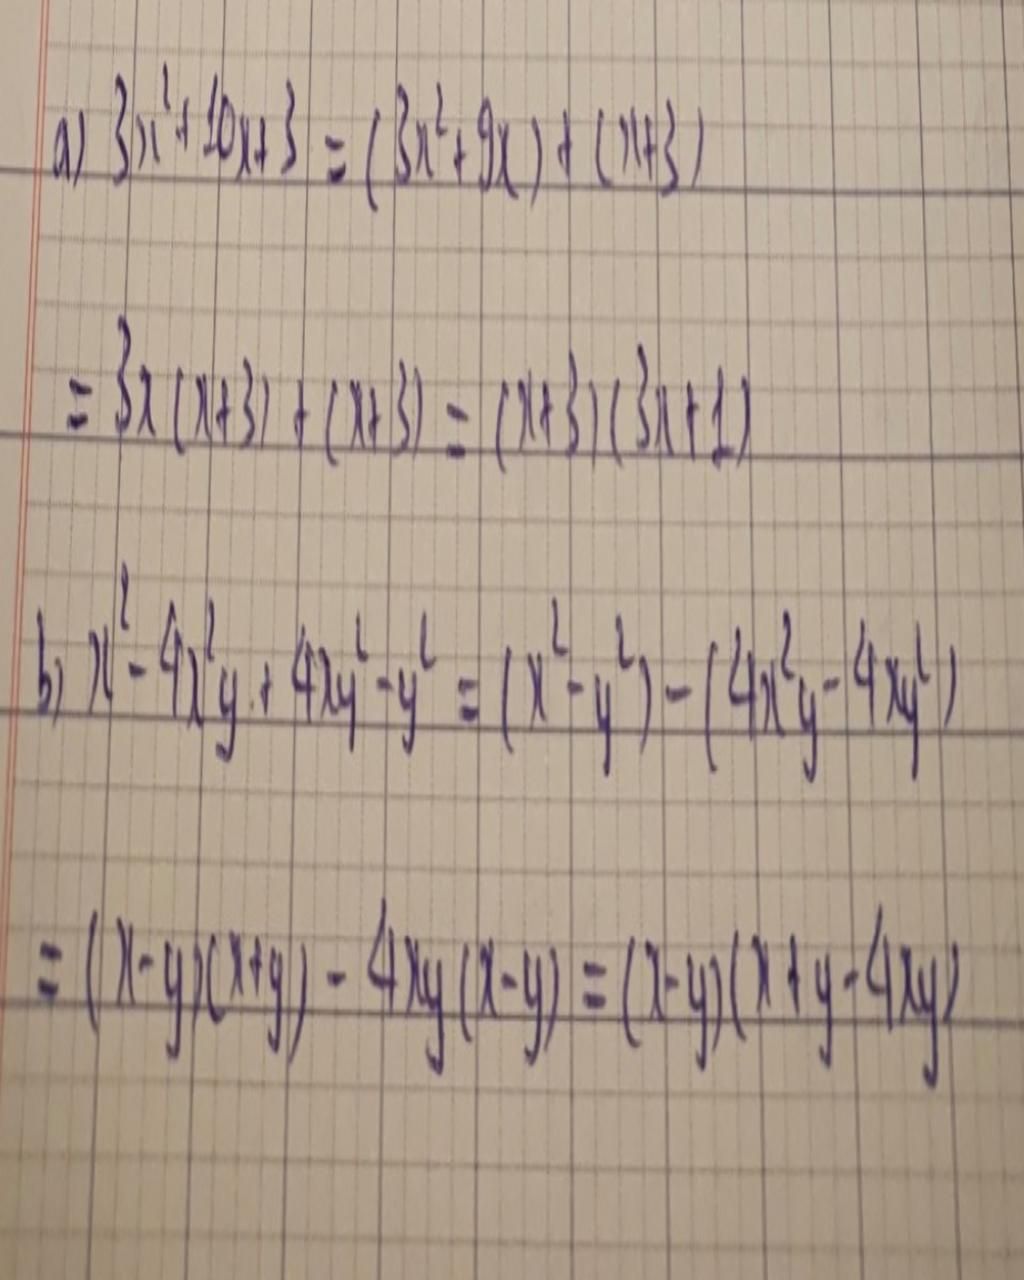 a) 3x² + 10x + 3 = (3x² + 9x) + (x + 3)
= 3x(x + 3) + (x + 3) = (x + 3)(3x + 1)
b) x² - 4x²y + 4xy² - y² = (x² - y²) - (4x²y - 4xy²)
= (x - y)(x + y) - 4xy(x - y) = (x - y)(x + y - 4xy)